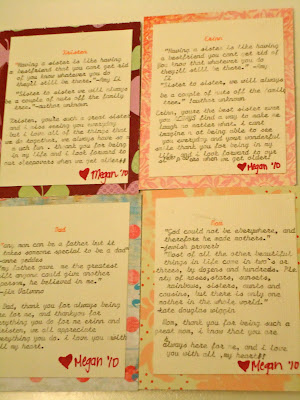 Kristen
"Having a sister is like having
a bestfriend that you cant get rid
of you know whatever you do
they'll still be there." -Amy
Li
"Sister to sister we will always
be a couple of nuts off the family
tree." -author unknown
Kristen, you're such a great sister
and i miss seeing you everyday
but i love all of the things that
we do together, we always have so
fun. thank you for being
in my life and i look forward to
our sleepovers when we get older
Megan '10
"Having a sister is like having
a bestfriend that you cant get rid of
you know that whatever you do
they'll still be there." -Amy
Li
"Sister to sister, we will always
be a couple of nuts off the family
tree." -author unknown
your the best sister ever
find a way to make me
laugh no matter what. i cant
imagine not being able to see
you everyday and your wonderful
smile thank you for being in my
life and i look forward to
when we get older
Megan '10
Dad
"any man can be a father but it
takes someone special to be a dad"
-anne geddes
"my father gave me the greatest
gift anyone could give another
person, he believed in me."
-Jim Valvano
Dad, thank you for always being
there for me, and thankyou for
everything you do for me erinn and
kristen, we all appreciate
everything you do. i love you with
all my heart.
Megan '10
"God could not be everywhere, and
therefore he made mothers."
-jewish proverb
"Most of all the other beautiful
things in life come in two's or
threes, by dozens and hundreds. Plenty
of roses, stars, sunsets,
rainbows, sisters, aunts and
cousins, but there is only one
mother in the whole world."
-kate douglas wiggin
Mom, thank you for being such a
great mom, i know that you are
always here for me, and i love
you with all my heart
Megan '10